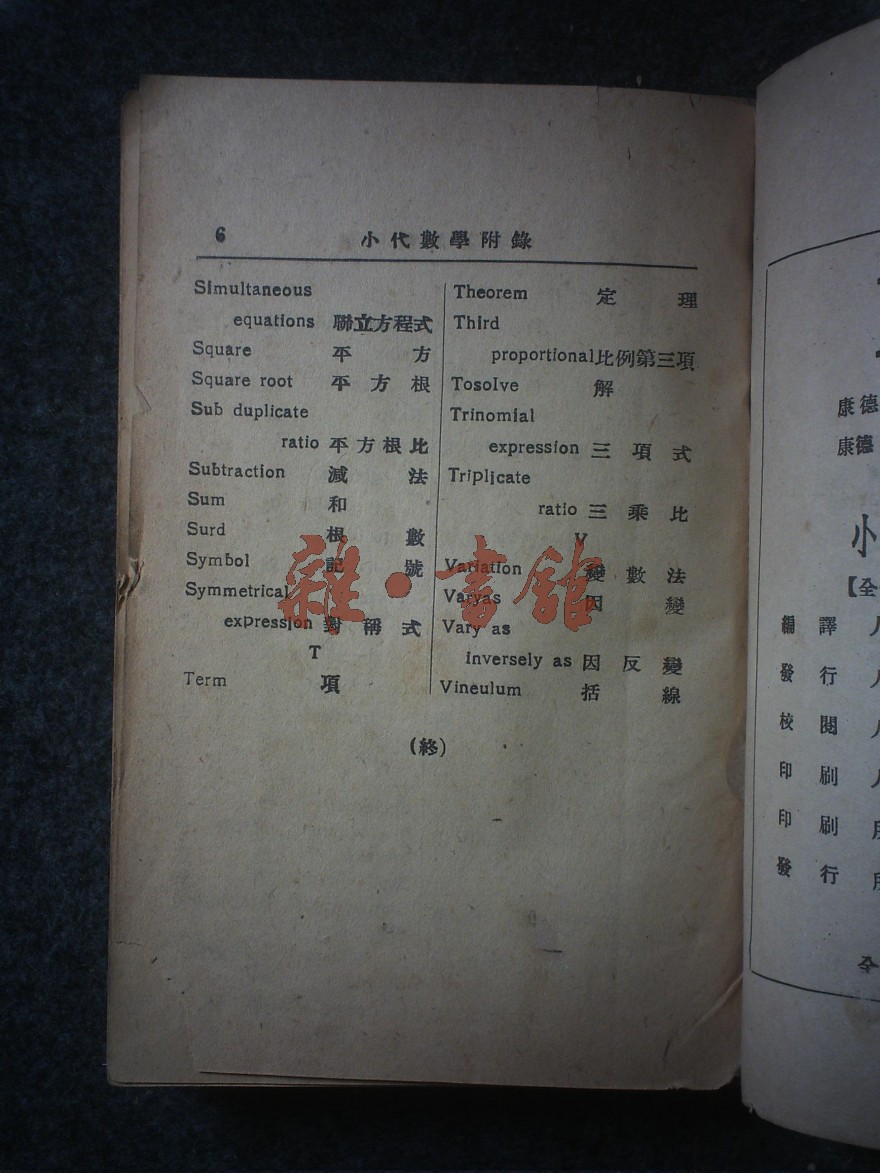 6 小代數學附錄
Simultaneous
equations 聯立方程式
Square 平方
Square root 平方根
Sub duplicate
ratio 平方根比
Subtraction 減法
Sum 和
Surd 根數
Symbol 記號
Symmetrical
expression 對稱式
T
Term 項
Theorem 定理
Third
proportional比例第三項
Tosolve 解
Trinomial
expression 三項式
Triplicate
ratio 三乘比
V
Variation 變數法
Varyas 因變
Vary as
inversely as 因反變
Vineulum 括線
(終)
雜·書館
康德
康德
小
【全
編譯人
發行人
校閱人
印刷人
印刷
發行
全